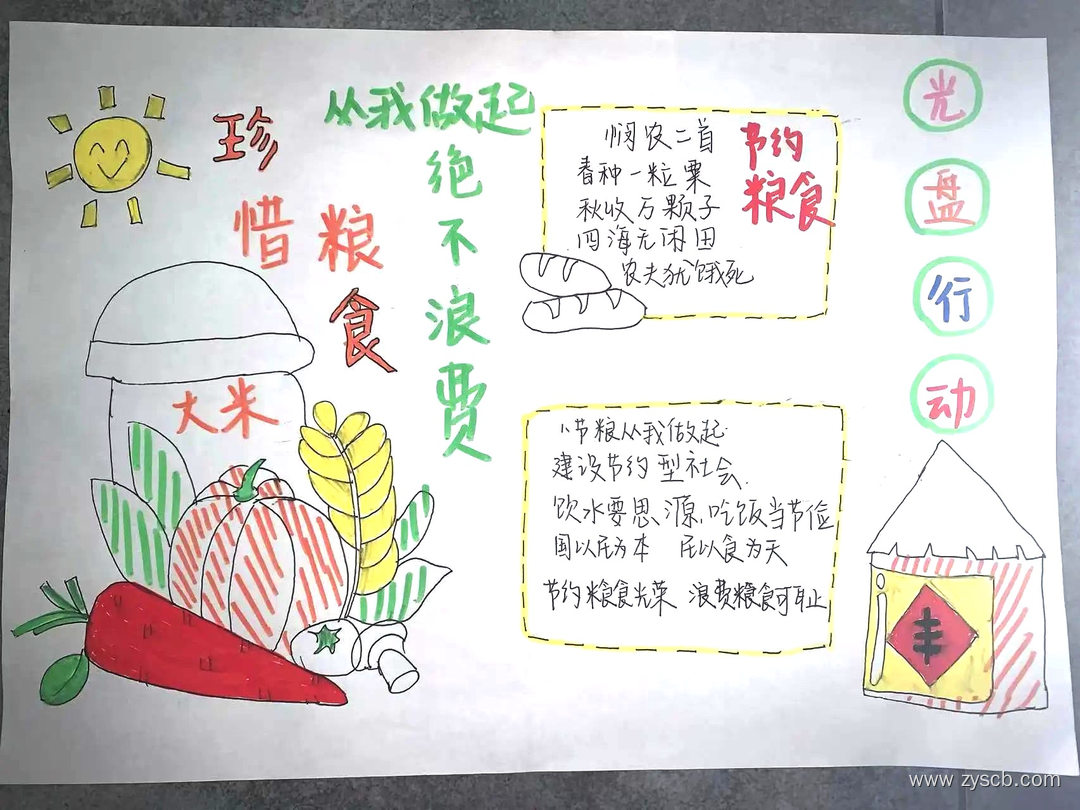 珍惜粮食
从我做起
绝不浪费
大米
悯农二首
春种一粒粟
秋收万颗子
四海无闲田
农夫犹饿死
节约
粮食
光盘行动
节粮从我做起
建设节约型社会
饮水要思源,吃饭当节俭
国以民为本 民以食为天
节约粮食光荣 浪费粮食可耻
丰
www.zyscb.com